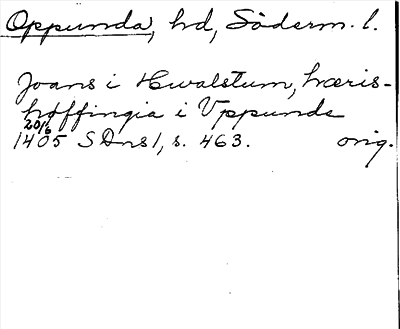 Oppunda, hd, Söderm. l.
Joans i Hwalstum, hæris-
høffingia i Vppunda
20/6
1405 SDns 1, s. 463. orig.